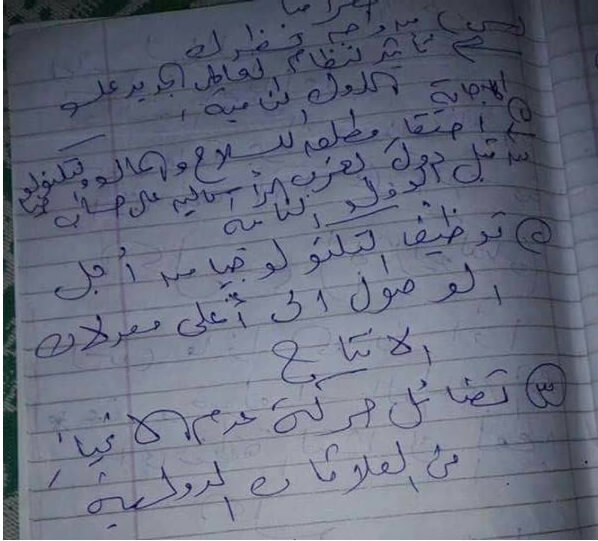 س) من وجه نظرك
تأثير لنظام العالمي الجديد على
الدول لنامية
الاجابة
① احتقار مطلق للسلاح والمال والتكنولوجيا
من قبل دول لغرب الرأسمالية على حساب
الدول النامية
② توظيف لتكنولوجيا من أجل
الوصول الى أعلى معدلات
الانتاج
③ تضائل حركة عدم الانحياز
في العلاقات الدولية